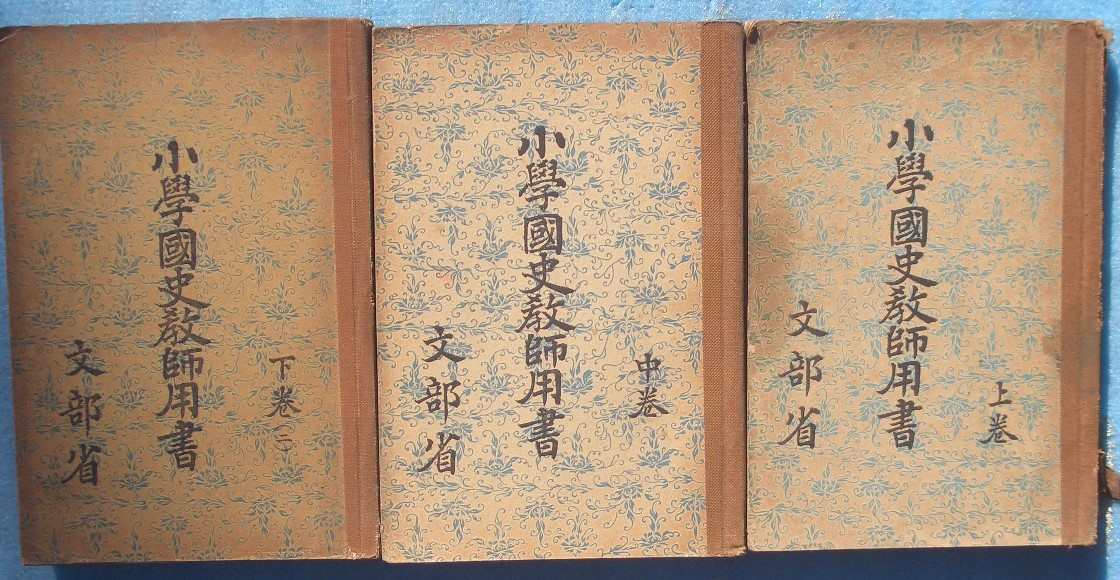 上卷
小學國史教師用書
文部省
中卷
小學國史教師用書
文部省
下卷(二)
小學國史教師用書
文部省